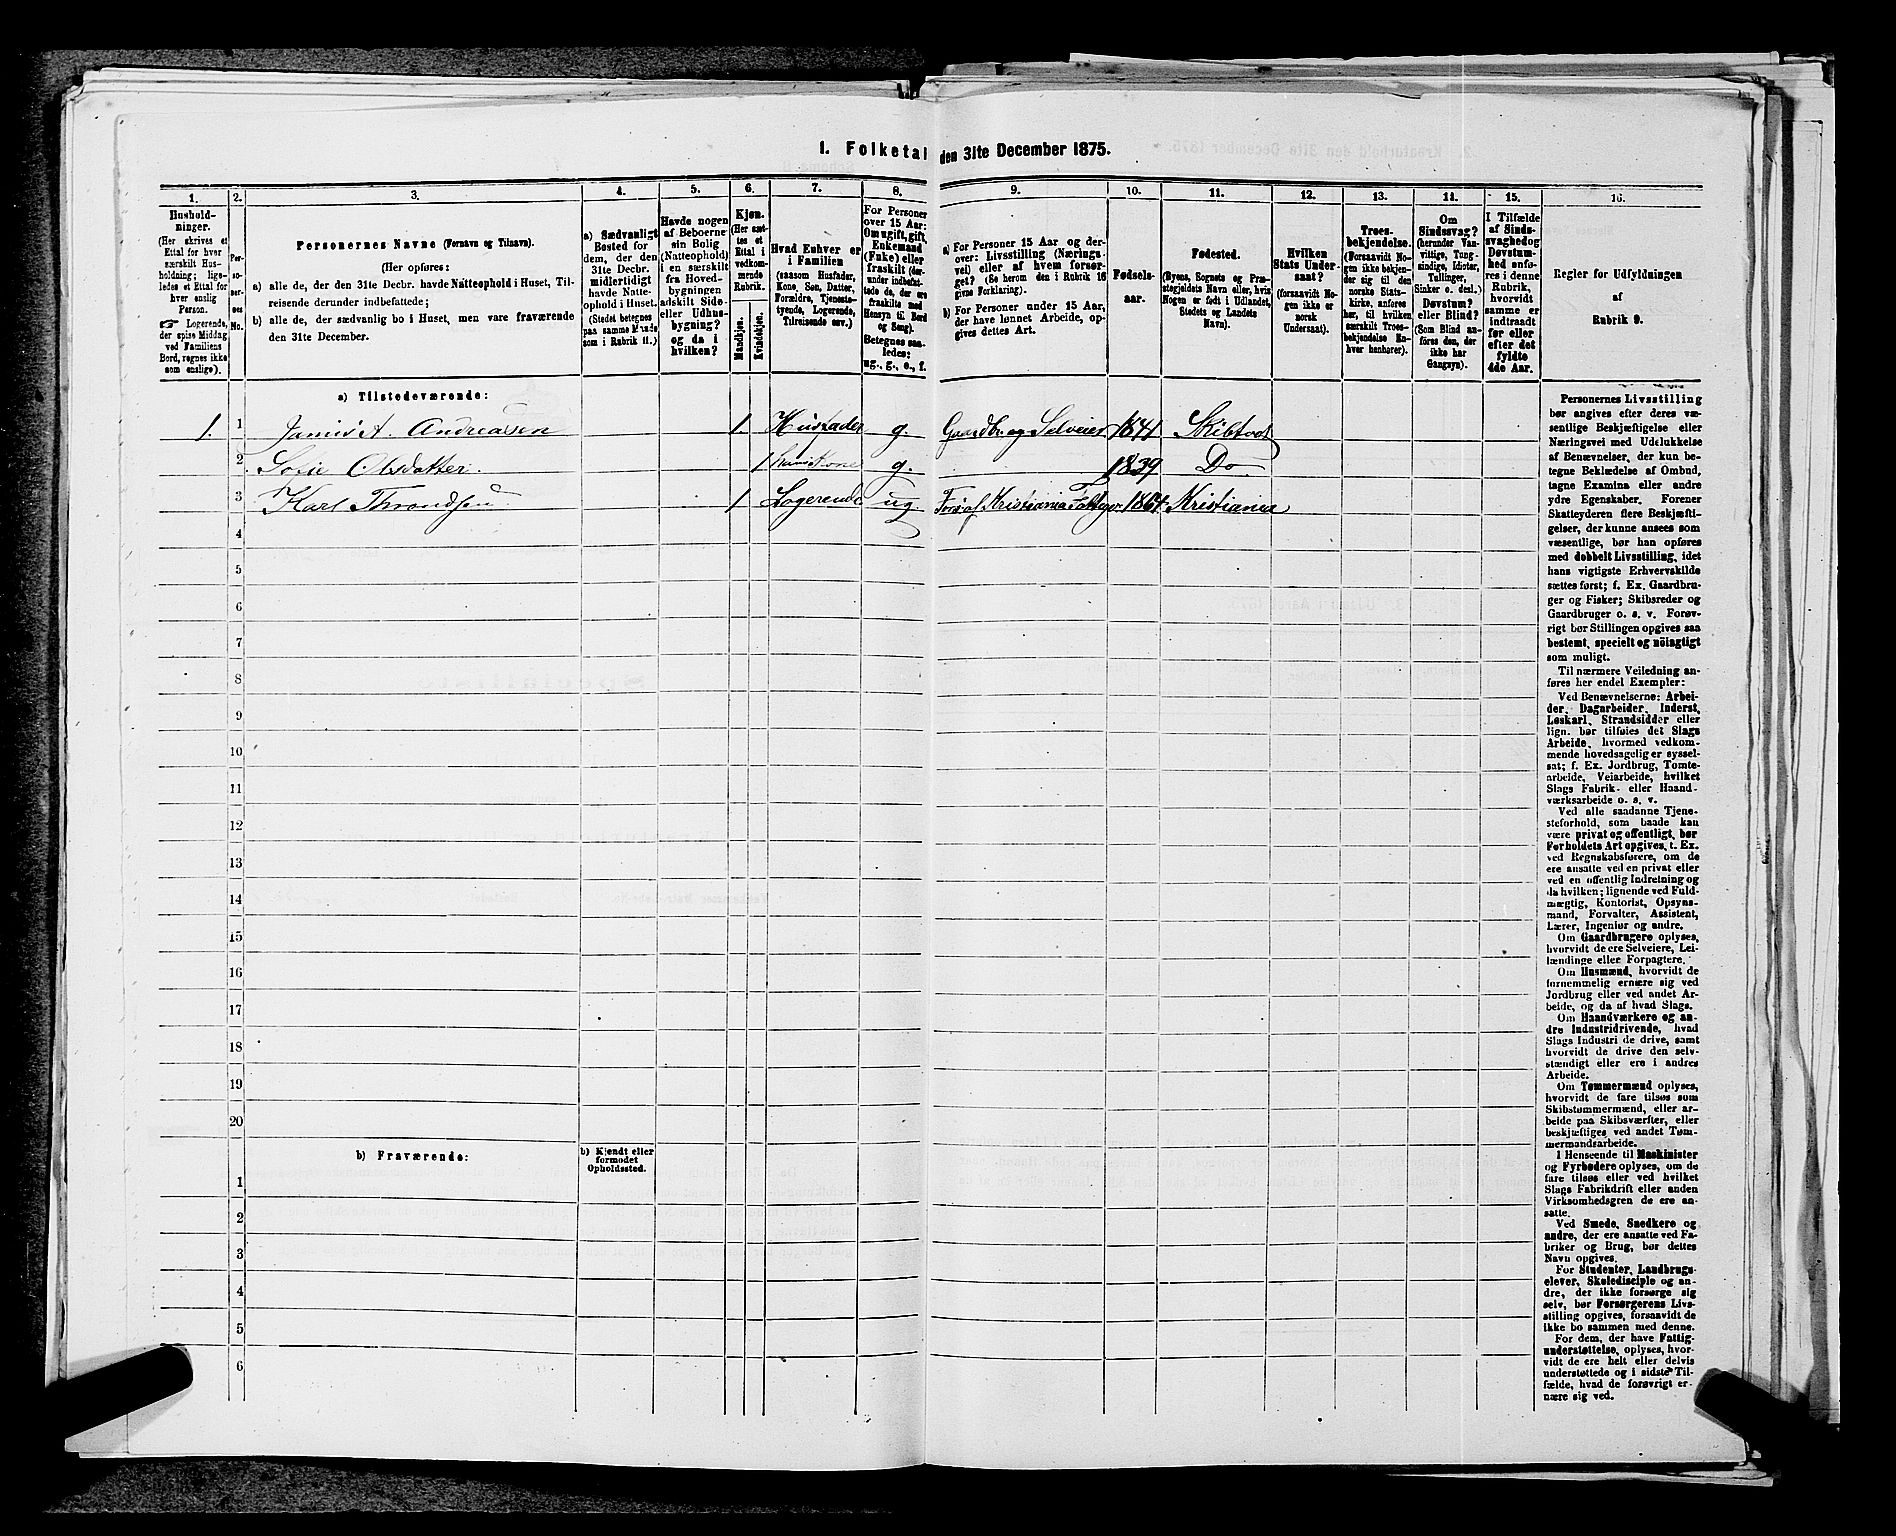 1. Folketal den 31te December 1875.
1. 2. 3. 4. 5. 6. 7. 8. 9. 10. 11. 12. 13. 14. 15. 16.
Hushold-
ninger.
(Her skrives et
Ettal for hver
særskilt Hus-
holdning; lige-
ledes et Ettal for
hver enslig
Person.
☞ Logerende,
der spise Middag
ved Familiens
Bord, regnes ikke
som enslige).
Per-
so-
ner-
nes
No.
Personernes Navne (Fornavn og Tilnavn).
(Her opføres:
a) alle de, der den 31te Decbr. havde Natteophold i Huset, Til-
reisende derunder indbefattede;
b) alle de, der sædvanlig bo i Huset, men vare fraværende
den 31te December.
a) Sædvanligt
Bosted for
dem, der den
31te Decbr.
midlertidigt
havde Natte-
ophold i Huset.
(Stedet betegnes
paa samme Maade
som i Rubrik 11.)
Havde nogen
af Beboerne
sin Bolig
(Natteophold)
i en særskilt
fra Hoved-
bygningen
adskilt Side-
eller Udhus-
bygning?
og da i
hvilken?
Kjøn.
(Her sæt-
tes et
Ettal i
vedkom-
mende
Rubrik.
Mandkjøn.
Kvindekjøn.
Hvad Enhver er
i Familien
(saasom Husfader,
Kone, Søn, Datter,
Forældre, Tjeneste-
tyende, Logerende,
Tilreisende osv.)
For Personer
over 15 Aar:
Om ugift, gift,
Enkemand
(Enke) eller
fraskilt (der-
under indbefat-
tede de, der ere
fraskilte med
Hensyn til Bord
og Seng).
Betegnes saa-
ledes:
ug., g., e., f.
a) For Personer 15 Aar og der-
over: Livsstilling (Nærings-
vei) eller af hvem forsør-
get? (Se herom den i Rubrik 16
givne Forklaring).
b) For Personer under 15 Aar,
der have lønnet Arbeide, op-
gives dettes Art.
Fødsels-
aar.
Fødested.
(Byens, Sognets og Præ-
stegjeldets Navn eller, hvis
Nogen er født i Udlandet,
Stedets og Landets
Navn).
Hvilken
Stats Under-
saat?
(forsaavidt No-
gen ikke er
norsk
Undersaat).
Troes-
bekjendelse.
(Forsaavidt No-
gen ikke bekjen-
der sig til den
norske Stats-
kirke, anføres
her, til hvilken
særskilt Troes-
bekjendelse En-
hver henhører).
Om
Sindssvag?
(herunder Van-
vittige, Tung-
sindige, Idioter,
Tullinger,
Sinker o. desl.)
Døvstum?
eller Blind?
(Som Blind an-
føres den, der
ikke har
Gangsyn).
I Tilfælde
af Sinds-
svaghed og
Døvstum-
hed anfø-
res i denne
Rubrik,
hvorvidt
samme er
indtraadt
før eller
efter det
fyldte
4de Aar.
Regler for Udfyldningen
af
Rubrik 9.
a) Tilstedeværende:
1. 1 A. Andreassen 1. Husfader g. Gaardbr. og Selveier 1841 Skibtvedt
2 Sofie Olsdatter. 1 hans Kone g. 1839 Do
3 Karl Throndsen 1 Logerende ug. Fors. af Kristiania Fattigv. 1864. Kristiania
4
5
6
7
8
9
10
11
12
13
14
15
16
17
18
19
20
b) Fraværende:
b) Kjendt eller
formodet
Opholdssted.
1
2
3
4
5
6
Personernes Livsstilling
bør angives efter deres væ-
sentlige Beskjæftigelse eller
Næringsvei med Udelukkelse
af Benævnelser, der kun be-
tegne Beklædelse af Ombud,
tagne Examina eller andre
ydre Egenskaber. Forener
Skatteyderen flere Beskjæfti-
gelser, der kunne ansees som
væsentlige, bør han opføres
med dobbelt Livsstilling, idet
hans vigtigste Erhvervskilde
sættes først; f. Ex. Gaardbru-
ger og Fisker; Skibsreder og
Gaardbruger o. s. v. Forøv-
rigt bør Stillingen opgives saa
bestemt, specielt og nöiagtigt
som muligt.
Til nærmere Veiledning an-
føres her endel Exempler:
Ved Benævnelserne: Arbei-
der, Dagarbeider, Inderst,
Løskarl, Strandsidder eller
lign. bør tilføies det Slags
Arbeide, hvormed vedkom-
mende hovedsagelig er syssel-
sat; f. Ex. Jordbrug, Tomte-
arbeide, Veiarbeide, hvilket
Slags Fabrik- eller Haand-
værksarbeide o. s. v.
Ved alle saadanne Tjene-
steforhold, som baade kan
være privat og offentligt, bør
Forholdets Art opgives, t. Ex.
ved Regnskabsførere, om de
ere ansatte ved en privat eller
ved en offentlig Indretning og
da hvilken; lignende ved Fuld-
mægtig, Kontorist, Opsyns-
mand, Forvalter, Assistent,
Lærer, Ingeniør og andre.
Om Gaardbrugere oplyses,
hvorvidt de ere Selveiere, Lei-
lændinge eller Forpagtere.
Om Husmænd, hvorvidt de
fornemmelig ernære sig ved
Jordbrug eller ved andet Ar-
beide, og da af hvad Slags.
Om Haandværkere og an-
dre Industridrivende, hvad
Slags Industri de drive, samt
hvorvidt de drive den selv-
stændigt eller ere i andres
Arbeide.
Om Tømmermænd oplyses,
hvorvidt de fare tilsøs som
Skibstømmermænd, eller ar-
beide paa Skibsværfter, eller
beskjæftiges ved andet Tøm-
mermandsarbeide.
I Henseende til Maskinister
og Fyrbødere oplyses, om de
fare tilsøs eller ved hvilket
Slags Fabrikdrift eller anden
Virksomhedsgren de ere an-
satte.
Ved Smede, Snedkere og
andre, der ere ansatte ved Fa-
briker og Brug, bør dettes
Navn opgives.
For Studenter, Landbrugs-
elever, Skoledisciple og an-
dre, der ikke forsørge sig
selv, bør Forsørgerens Livs-
stilling opgives, forsaavidt de
ikke bo sammen med denne.
For dem, der have Fattig-
understøttelse, oplyses, hvor-
vidt de ere helt eller delvis
understøttede og i sidste Til-
fælde, hvad de forøvrigt er-
nære sig ved.